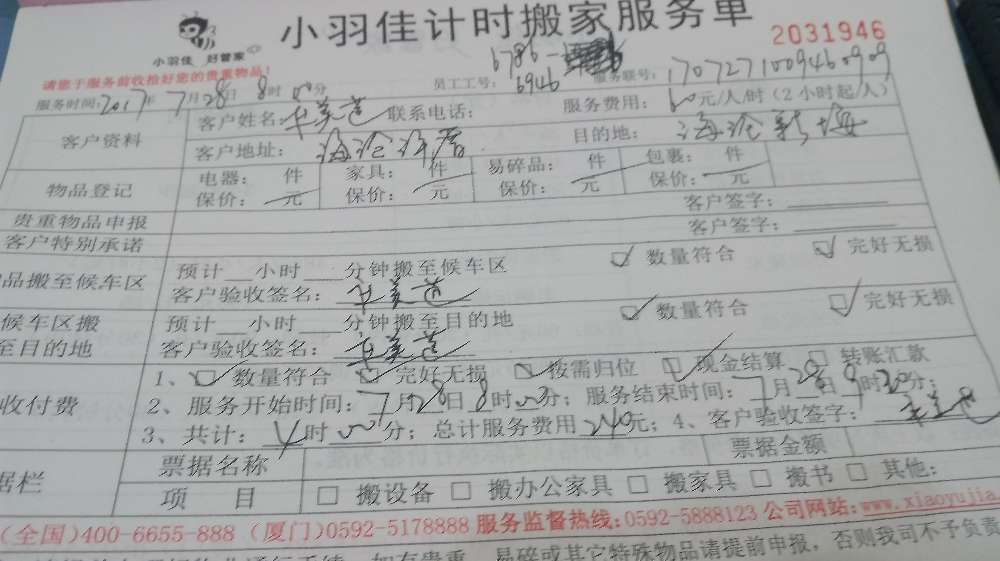 小羽佳计时搬家服务单
小羽佳 好管家
2031946
请您于服务前收捡好您的贵重物品!
员工工号: 6786-
6946
服务联号: 170727100946 0909
服务时间: 2017年7月28日8时00分
客户资料
客户姓名: 联系电话: 服务费用: 60元/人/时(2小时起/人)
客户地址: 目的地:
物品登记
电器: 件 家具: 件 易碎品: 件 包裹: 件
保价: 元 保价: 元 保价: 元 保价: 元
贵重物品申报 客户签字:
客户特别承诺 客户签字:
品搬至候车区
预计 小时 分钟搬至候车区 数量符合 完好无损
客户验收签名:
候车区搬
至目的地
预计 小时 分钟搬至目的地 数量符合 完好无损
客户验收签名:
收付费
1、 数量符合 完好无损 按需归位 现金结算 转账汇款
2、服务开始时间: 7月28日8时00分; 服务结束时间: 7月28日9时20分;
3、共计: 4时00分; 总计服务费用240元; 4、客户验收签字:
据栏
票据名称 票据金额
项 目 搬设备 搬办公家具 搬家具 搬书 其他:
(全国)400-6655-888 (厦门)0592-5178888 服务监督热线:0592-5888123 公司网站:www.xiaoyujia.
易碎或其它特殊物品请提前申报,否则我司不予负责